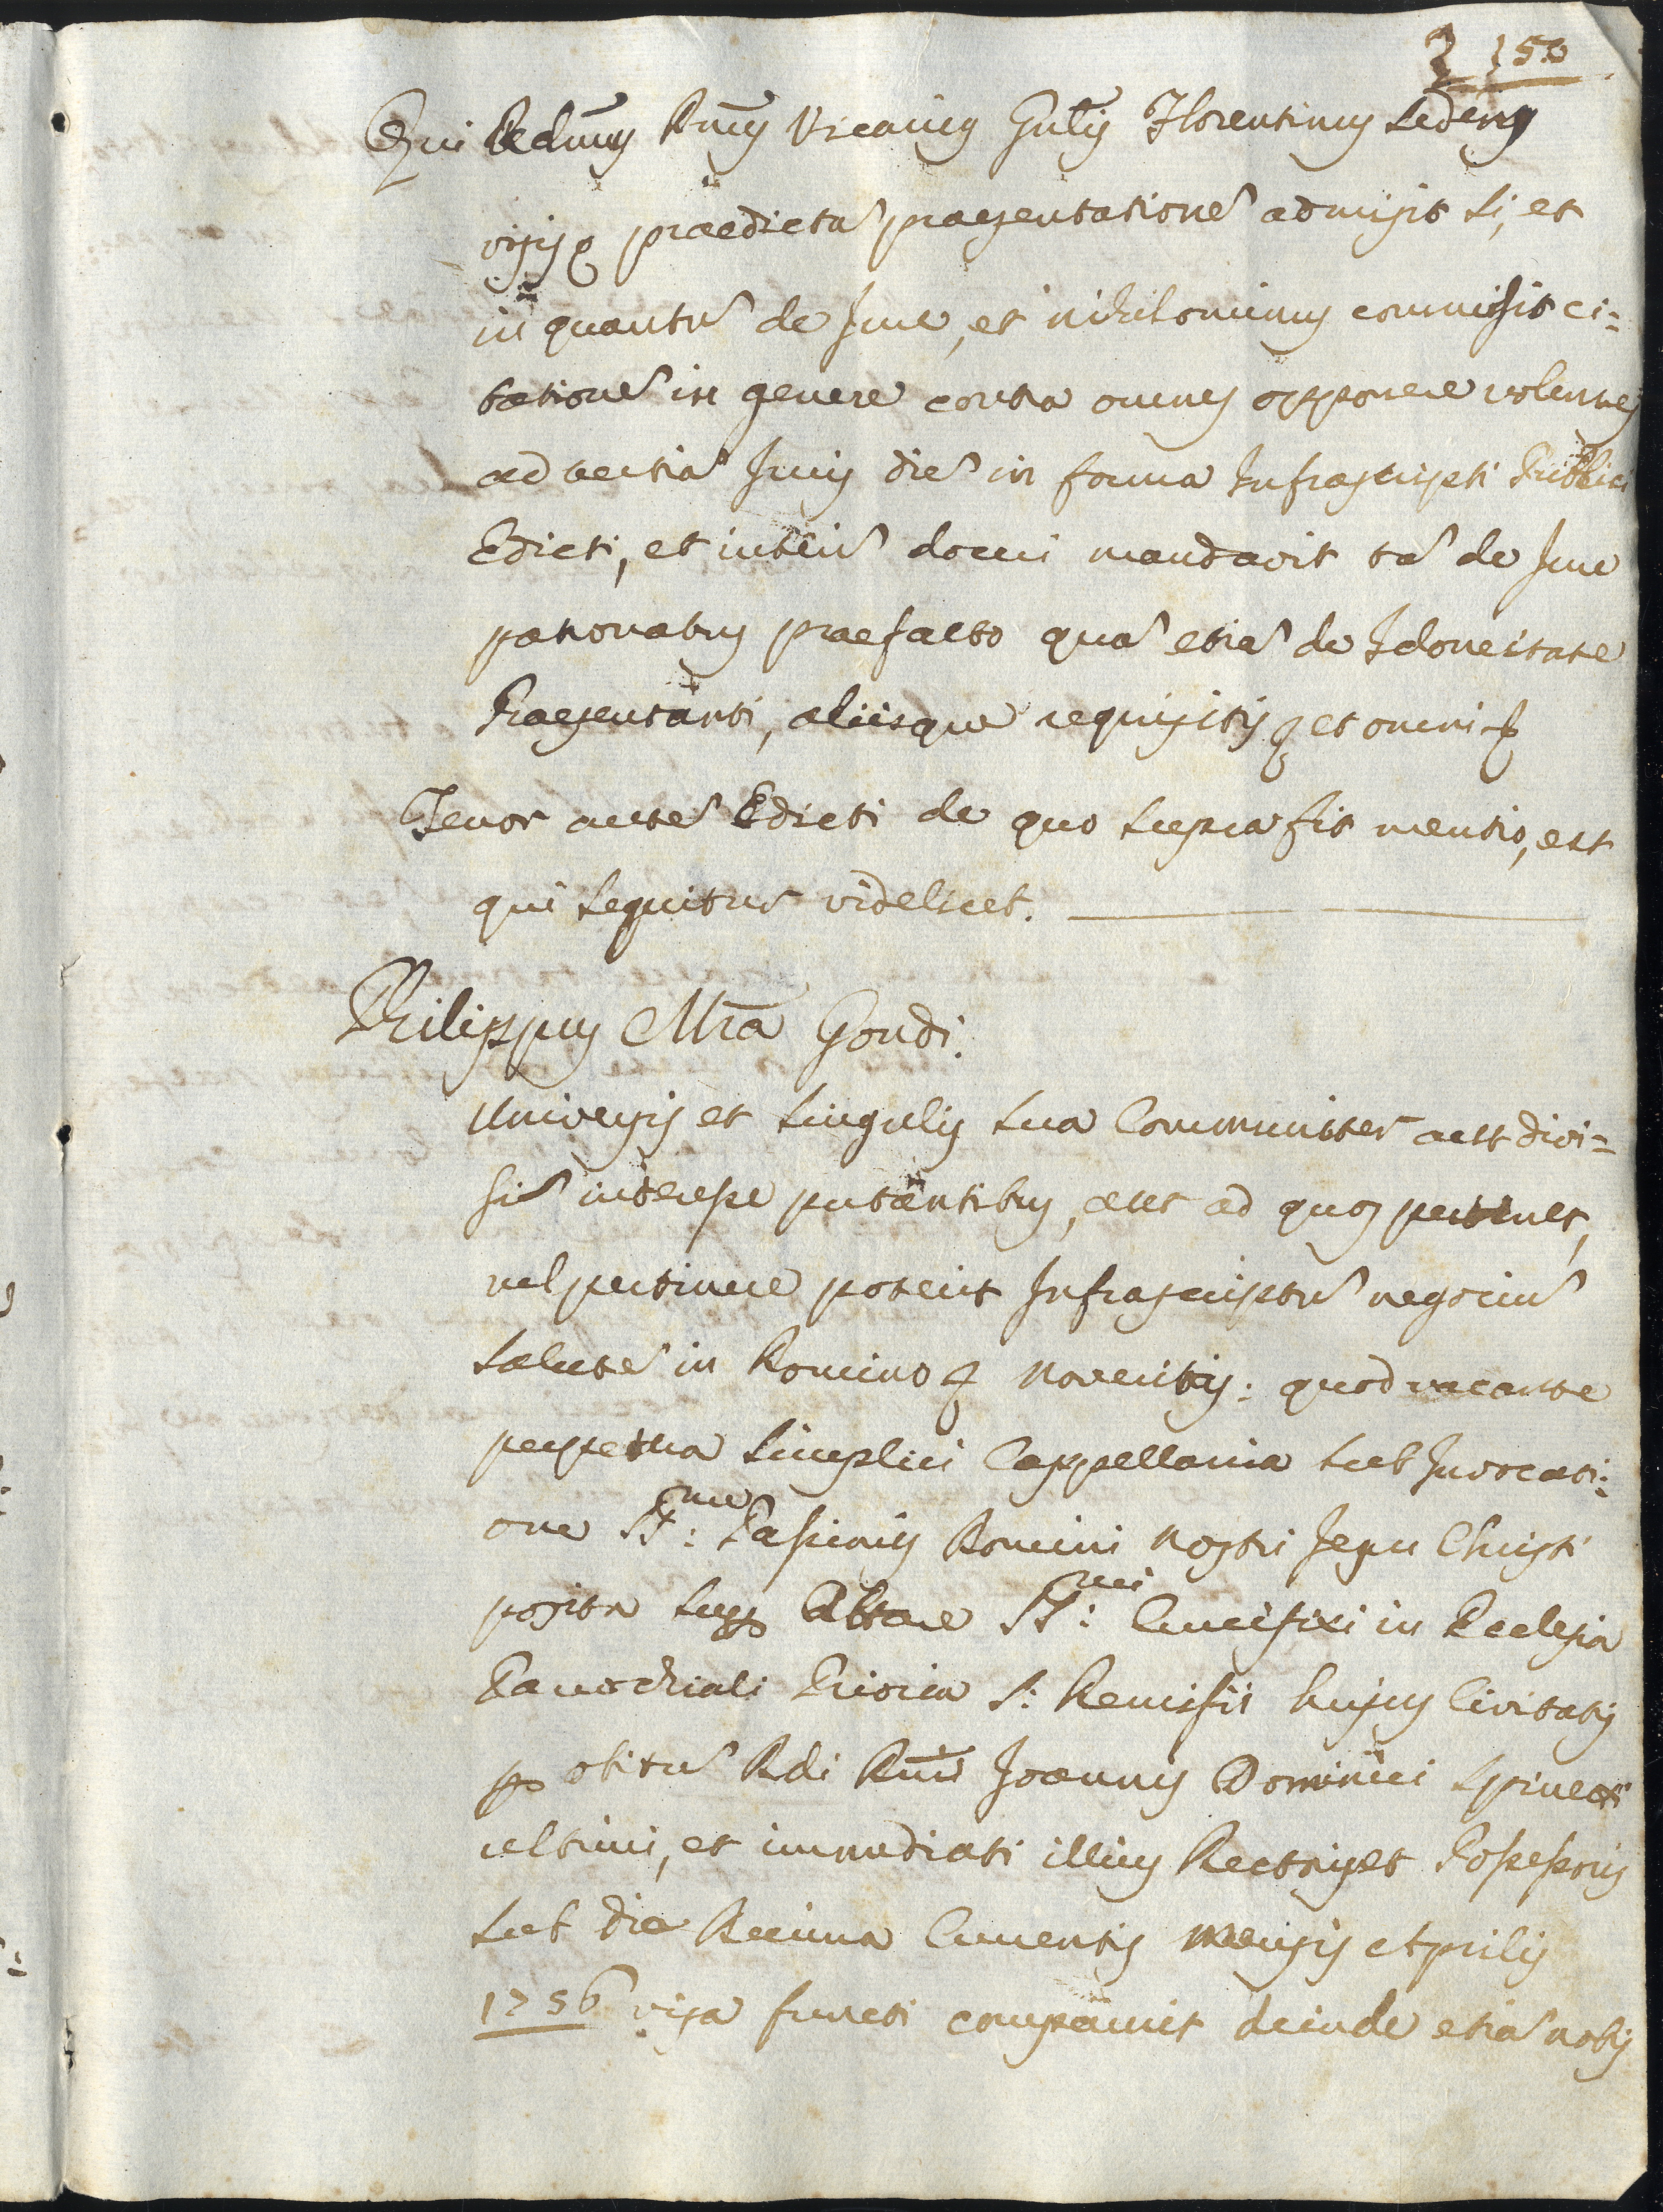 2 150
Qui Redmus Dnus Vicarius Gnlis Florentinus sedens
visisq praedictã praesentationẽ admisit si, et
in quantũ de Jure, et nihilominus commisit ci=
tationẽ in genere contra omnes opponere volentes
ad tertiã Juris diẽ in forma Infrascripti Publici
Edicti, et interĩ doceri mandavit tã de Jure
patronatus praefacto quã etiã de Idoneitate
Praesentati, aliisque requisitis et omni
Tenor autẽ Edicti de quo supra fit mentio, est
qui sequitur videlicet.
Philippus Mra Gondi.
Universis et singulis sua Communiter aut divi=
sĩ interesse putantibus, aut ad quos pertinet,
vel pertinere poterit Infrascriptũ negociũ
salutẽ in Domino Noveritis: quod vacante
perpetua simplici Cappellania sub Invocati=
one SS:me Passionis Domini Nostri Jesu Christi
posita sup Altare SS:mi Crucifixi in Ecclesia
Parochiali Prioria S: Remisii hujus Civitatis
p obitũ Rdi Dni Joannis Dominici Spinetti
ultimi, et immediati illius Rectoris et Possessoris
sub die Decima Currentis Mensis Aprilis
1756 vita functi comparuit deinde etiã nobis